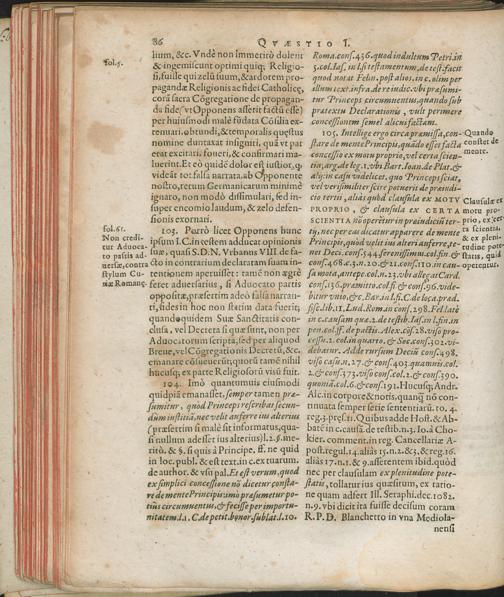 86 QVÆSTIO I.
fol.5.
lium, &c. Vndè non immeritò dolent
& ingemiscunt optimi quiq; Religio-
si, fuisse qui zelù suum, & ardorem pro-
pagandæ Religionis ac fidei Catholicę,
corá sacra Cōgregatione de propagan-
da fide (vt Opponens asserit factū esse)
per huiusmodi malè fūdata Cōsilia ex-
tenuari, obtundi, & temporalis quęstus
nomine duntaxat insigniti, quá vt par
erat excitari, foueri, & confirmari ma-
luerint. Et eò quidē dolor est iustior, q
videát tot falsa narrata, ab Opponente
nostro, rerum Germanicarum minimè
ignaro, non modò dissimulari, sed in-
super encomio laudum, & zelo defen-
sionis exornari.
fol. 61.
Non credi-
tur Aduoca-
to partis ad-
uersæ, contra
stylum Cu-
riæ Romanę
103. Porrò licet Opponens hunc
ipsum I. C. in testem adducat opinionis
suæ, quasi S.D.N. Vrbanus VIII. de fa-
cto in contrarium declaratam suam in-
tentionem aperuisset: tamē non ægrè
feret aduersarius, si Aduocato partis
oppositæ, præsertim adeò falsa narran-
ti, fides in hoc non statim data fuerit;
quandoquidem Suæ Sanctitatis con-
clusa, vel Decreta si quæ sunt, non per
Aduocatorum scripta, sed per aliquod
Breue, vel Cōgregationis Decretū, &c.
emanare cōsueuerūt; quorū tamē nihil
hucusq; ex parte Religiosorū visū fuit.
104. Imò quantumuis eiusmodi
quidpiā emanasset, semper tamen præ-
sumitur, quòd Princeps rescribat secun-
dùm iustitiā, nec velit auferre ius alterius
(præsertim si malè sit informatus, qua-
si nullum adesset ius alterius) l. 2. §. me-
ritò, & §. si quis à Principe, ff. ne quid
in loc. publ. & est text. in c. ex tuarum.
de author. & vsu pal. Et est verum, quod
ex simplici concessione nō dicetur consta-
re de mente Principis: imò præsumetur po-
tiùs circumuentus, & fecisse per importu-
nitatem. l. 1. C. de petit. bonor. sublat. l. 10.
Roma. cons. 436. quod indultum Petri. in
5. col. Ias. in l. si testamentum, de test. facit
quod notat Felin. post alios, in c. olim per
illum text. infra. de re iudic. vbi præsumi-
tur Princeps circumuentus, quando sub
prætextu Declarationis, vult perimere
concessionem semel alicui factam.
Quando
constet de
mente.
105. Intellige ergo circa præmissa, con-
stare de mente Principis, quādo esset facta
concessio ex motu proprio, vel certa scien-
tia; arg. de leg. 1. vbi Bart. Ioan. de Plat. &
alij: in casu videlicet, quo Princeps sciat,
vel verisimiliter scire potuerit de præiudi-
cio tertij, aliàs quòd clausula ex MOTV
PROPRIO, & clausula ex CERTA
SCIENTIA nō operētur in præiudiciū ter-
tij, nec per eas dicatur apparere de mente
Principis, quòd velit ius alteri auferre, te-
net Deci. cons. 544. serenissimi. col. fin. &
Clausulæ ex
motu pro-
prio, ex cer-
ta scientia,
& ex pleni-
tudine pote-
statis, quid
operentur.
cons. 468. æ 3. n. 20. & 21. cons. 110. in cau-
sa mota, antepe. col. n. 23. vbi allegat Card.
cons. 136. præmitto. col. fi. & cons. 96. vide-
bitur vnio, &c. Bar. in l. fi. C. de loca. præd.
fisc. lib. 11. Lud. Roman. cons. 298. Fel. latè
in c. causam quæ 2. de testib. Ias. in l. fin. in
pen. col. ff. de pactis. Alex. cōs. 28. viso pro-
cessu. 2. col. in quarto, & Soc. cons. 302. vi-
debatur. Adde rursum Deciū cons. 498.
viso casu. n. 27. & cons. 403. quamuis. col.
2. & cons. 373. viso cons. col. 2. & cons. 390.
quoniā. col. 6. & cons. 191. Hucusq; Andr.
Alc. in corpore notis, quanq̄ nō con-
tinuata semper serie sententiarū. to. 4.
reg. 3. præs. 11. Quibus adde Host. & Ab-
bat. in c. causā. de testib. n. 3. Io. à Cho-
kier. comment. in reg. Cancellariæ A-
post. regul. 14. aliàs 15. n. 2. & 3. & reg. 16.
aliàs 17. n. 1. & 9. asserentem ibid. quòd
nec per clausulam ex plenitudine pote-
statis, tollatur ius quæsitum, ex ratio-
ne quam adfert Ill. Seraphi. dec. 1082.
n. 9. vbi dicit ita fuisse decisum coram
R.P.D. Blanchetto in vna Mediola-
nensi